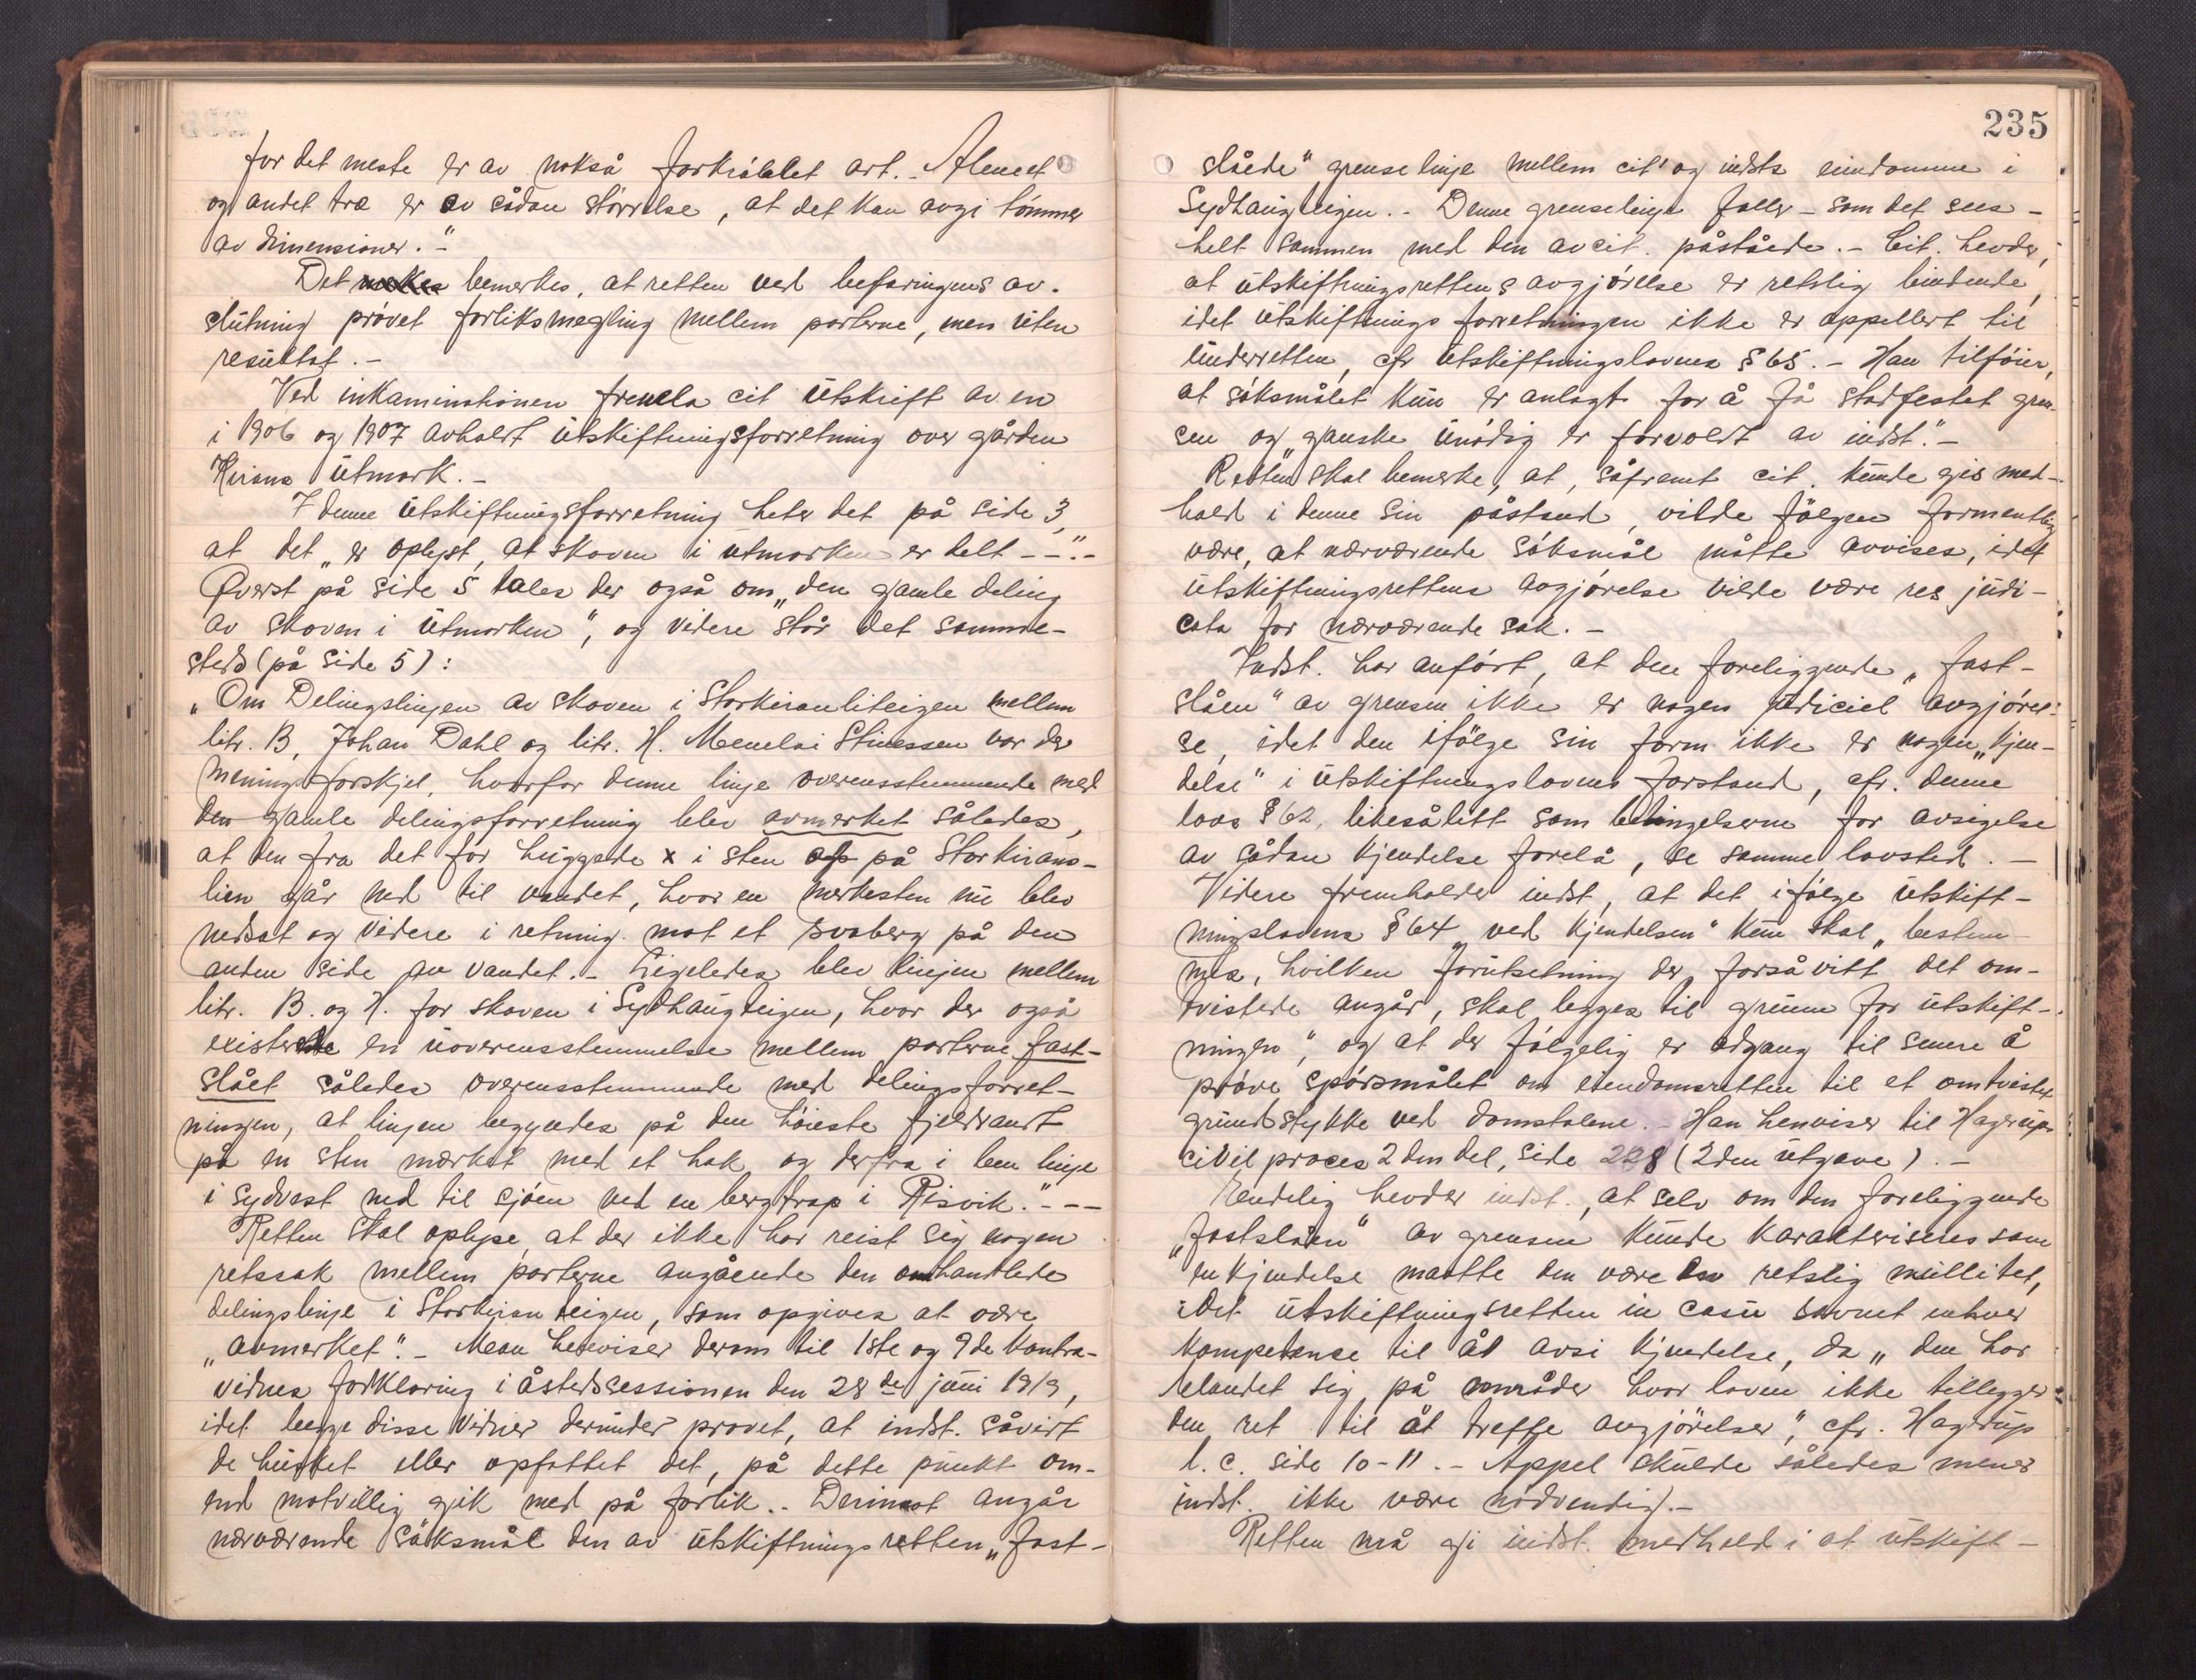 for det meste er av nokså forkröblet art.- Alment
og andet træ er av sådan störrelse, at det kan avgi tömmer
av dimensioner."-
Det bemerkes, at retten ved befaringens av-
slutning prövet forliksmegling mellem parterne, men uten
resultat.-
Ved inkaminationen fremla cit utskrift av en
i 1906 og 1907 avholdt utskiftningsforretning over gården
Kirans utmark.-
I denne utskiftningsforretning heter det på side 3,
at det „er oplyst, at skoven i utmarken er delt - -".-
Øverst på side 5 tales der også om „den gamle deling
av skoven i utmarken", og videre står det samme-
steds (på side 5):
„Om Delingslinjen av skoven i Storkiranliteigen mellem
litr. B, Johan Dahl og litr. H. Menelai Stinessen var der
meningsforskjel, hvorfor denne linje overensstemmende med
den gamle delingsforretning blev avmerket således,
at den fra det før huggede x i sten op på Storkirans-
lien går ned til vandet, hvor en merkesten nu blev
nedsat og videre i retning mot et svaberg på den
anden side av vandet.- Ligeledes blev linjen mellem
litr. B. og H. for skoven i Sydhaugteigen, hvor der også
existerte en uoverensstemmelse mellem parterne fast-
slået således overensstemmende med delingsforret-
ningen, at linjen begyndes på den höieste fjeldrandt
på en sten mærket med et hak og derfra i ben linje
i sydvest ned til sjöen ved en bergtrap i Risvik."- - -
Retten skal oplyse, at der ikke har reist sig nogen
retssak mellem parterne angående den omhandlede
delingslinje i Storkiranteigen, som opgives at være
„avmerket".- Man henviser derom til 1ste og 9de kontra-
vidnes forklaring i åstedssessionen den 28de juni 1919,
idet begge disse vidner derunder provet, at indst. såvidt
de husket eller opfattet det, på dette punkt om-
end motvillig gik med på forlik.- Derimot angår
nærværende söksmål den av utskiftningsretten „fast-
235
slåede" grenselinje mellem cit' og indsts eiendomme i
Sydhaugteigen.- Denne grenselinje faller - som det sees -
helt sammen med den av cit. påståede.- Cit. hevder,
at utskiftningsrettens avgjörelse er retslig bindende,
idet utskiftningsforretningen ikke er appellert til
underretten, cfr utskiftningslovens § 65.- Han tilföier,
at söksmålet kun er anlagt for å få stadfestet gren-
sen og „ganske unödig er forvoldt av indst."-
Retten skal bemerke, at, såfremt cit. kunde gis med-
hold i denne sin påstand, vilde fölgen formentlig
være, at nærværende söksmål måtte avvises, idet
utskiftningsrettens avgjörelse vilde være res judi-
cata for nærværende sak.-
Indst. har anfört, at den foreliggende „fast-
slåen" av grensen ikke er nogen judiciel avgjörel-
se, idet den ifölge sin form ikke er nogen „kjen-
delse" i utskiftningslovens forstand, cfr. denne
lovs § 62, likesålitt som betingelserne for avsigelse
av sådan kjendelse forelå, se samme lovsted.-
Videre fremholder indst, at det ifölge utskift-
ningslovens § 64 „ved kjendelsen" kun skal „bestem-
mes, hvilken forutsetning der, forsåvitt det om-
tvistede angår, skal legges til grunn for utskift-
ningen", og at der fölgelig er adgang til senere å
pröve spörsmålet om eiendomsretten til et omtvistet
grundstykke ved domstolene.- Han henviser til Hagerups
civilproces 2den del, side 228 (2den utgave).-
Endelig hevder indst., at selv om den foreliggende
„fastslåen" av grensen kunde karakteriseres som
en kjendelse maatte den være en retslig nullitet,
idet utskiftningsretten in casu savnet enhver
kompetanse til åt avsi kjendelse, da „den har
belandet sig på områder hvor loven ikke tillegger
den ret til åt treffe avgjörelser", cfr. Hagerup
l. c. side 10-11.- Appel skulde således mener
indst. ikke være nödvendig.-
Retten må gi indst. medhold i at utskift-